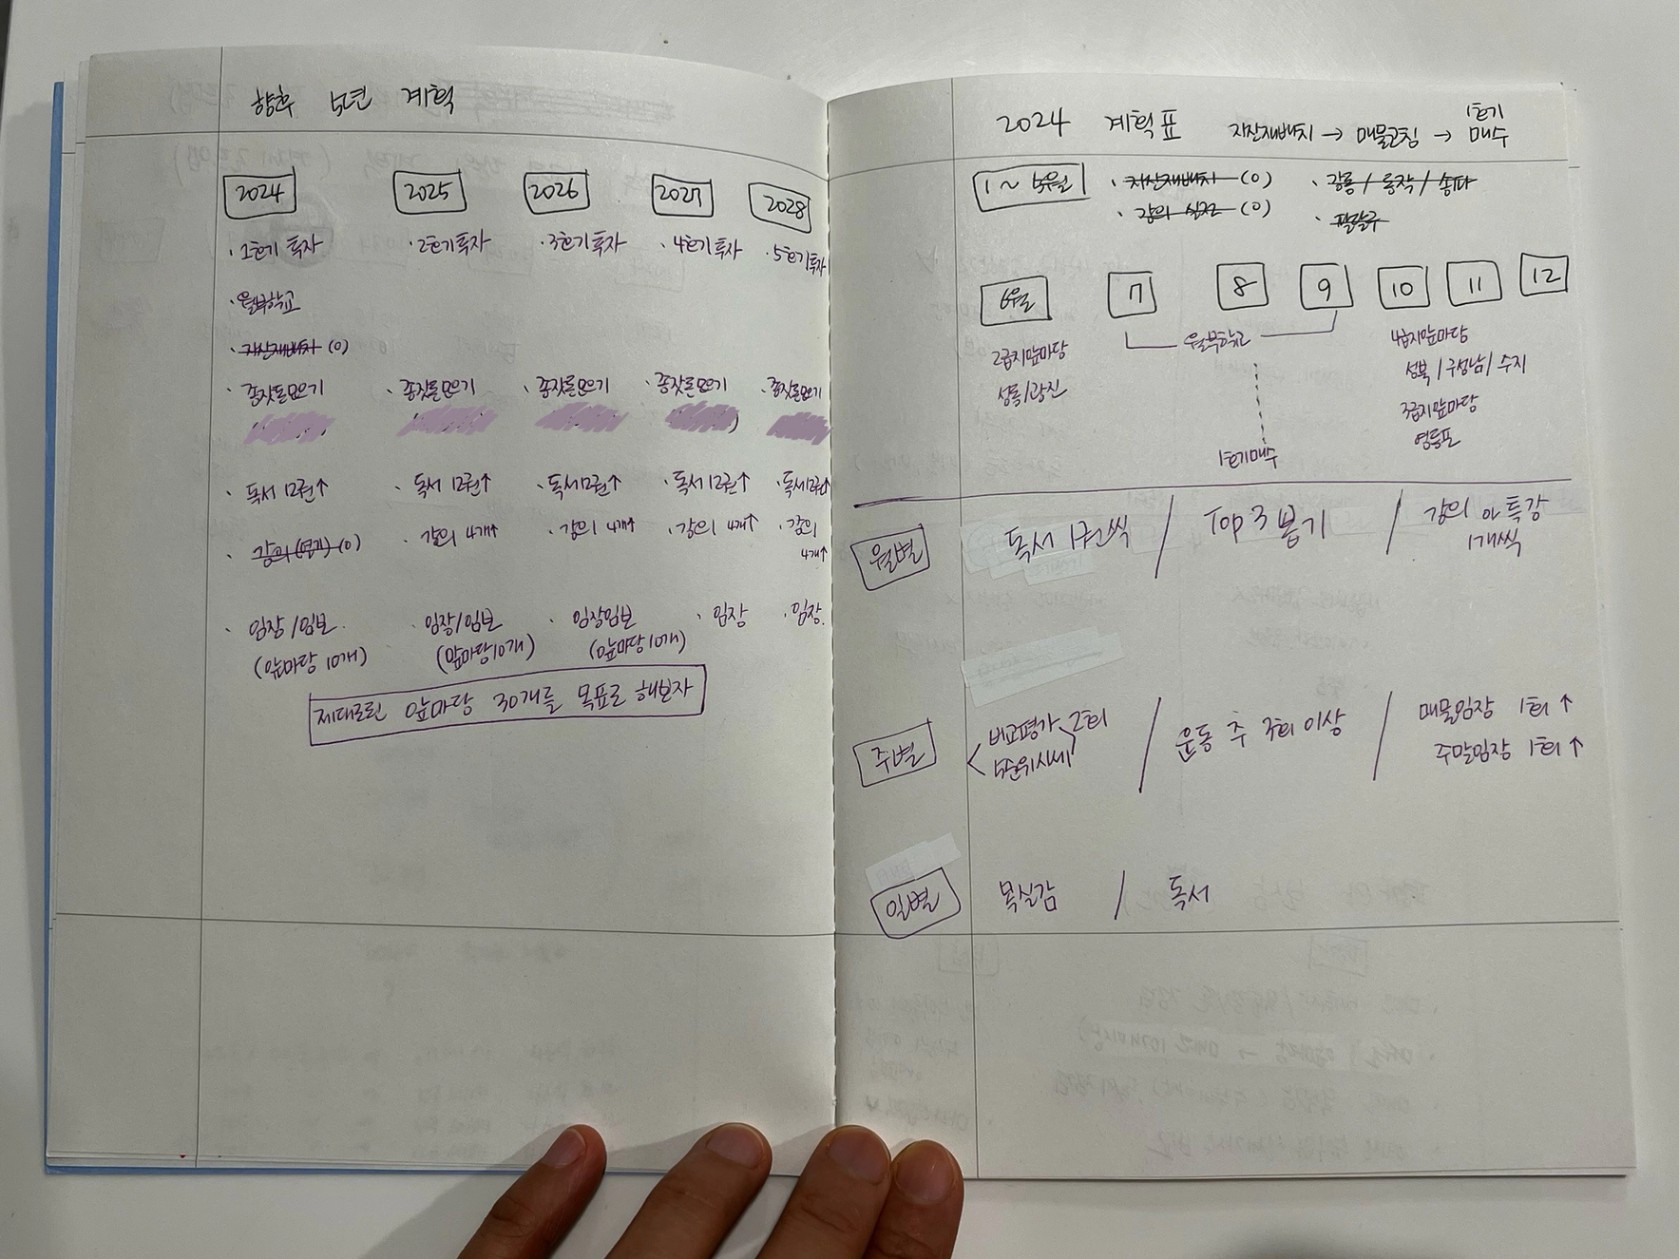 향후 5년 계획
2024 2025 2026 2027 2028
· 1호기 투자 · 2호기 투자 · 3호기 투자 · 4호기 투자 · 5호기 투자
· 월부학교
· 자산재배치 (O)
· 종잣돈모으기 · 종잣돈모으기 · 종잣돈모으기 · 종잣돈모으기 · 종잣돈모으기
· 독서 12권↑ · 독서 12권↑ · 독서 12권↑ · 독서 12권↑ · 독서 12권↑
· 강의 (4개) (O) · 강의 4개↑ · 강의 4개↑ · 강의 4개↑ · 강의 4개↑
· 임장/임보 · 임장/임보 · 임장임보 · 임장 · 임장
(앞마당 10개) (앞마당 10개) (앞마당 10개)
제대로된 앞마당 30개를 목표로 해보자
2024 계획표 자산재배치 → 매물코칭 → 1호기 매수
1~5월 · 자산재배치 (O) · 강동 / 동작 / 송파
· 강의 (O) · 팔달구
6월 7 8 9 10 11 12
2급지앞마당 월부학교 4급지앞마당
성동/광진 성북 / 구성남 / 수지
3급지앞마당
영등포
1호기매수
월별 독서 1권씩 / Top 3 뽑기 / 강의 or 특강 1개씩
주별 < 비교평가 2회 / 운동 주 3회 이상 / 매물임장 1회↑
5순위시세 주말임장 1회↑
일별 목실감 / 독서